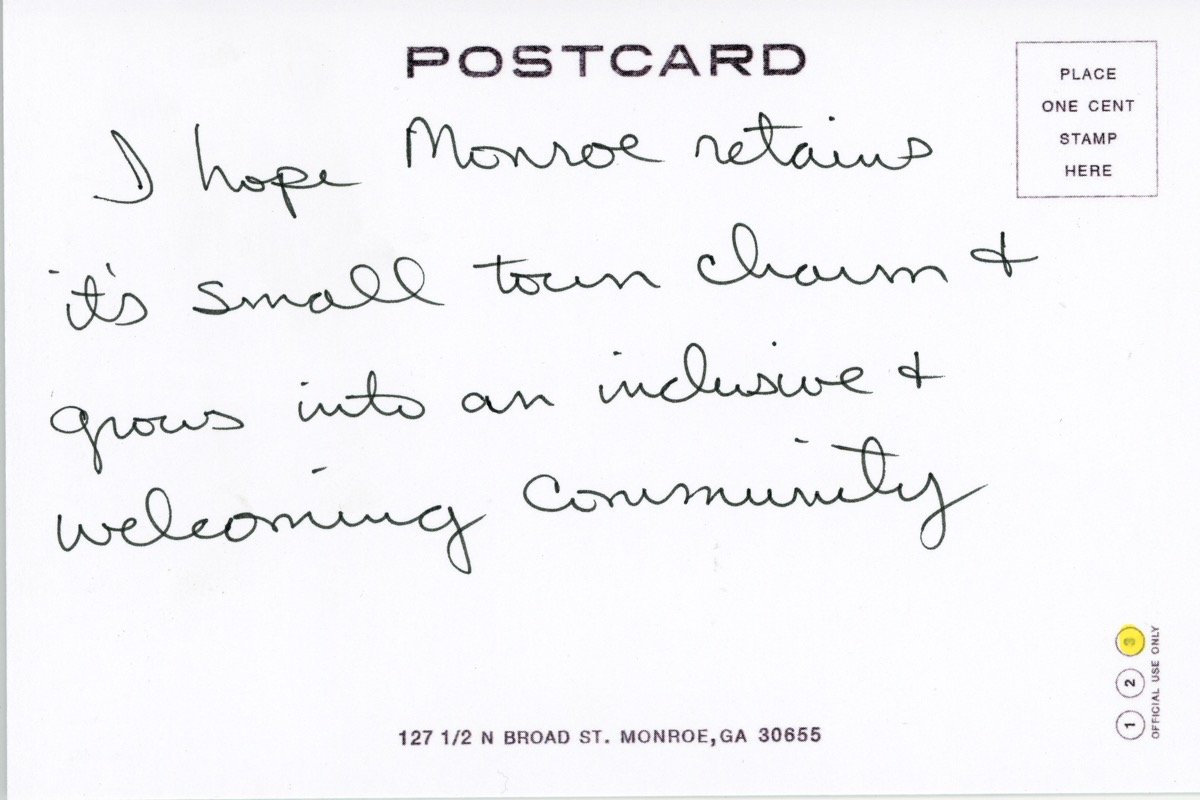 POSTCARD
PLACE
ONE CENT
STAMP
HERE
I hope Monroe retains
it's small town charm &
grows into an inclusive &
welcoming community
127 1/2 N BROAD ST. MONROE,GA 30655
1 2 3
OFFICIAL USE ONLY